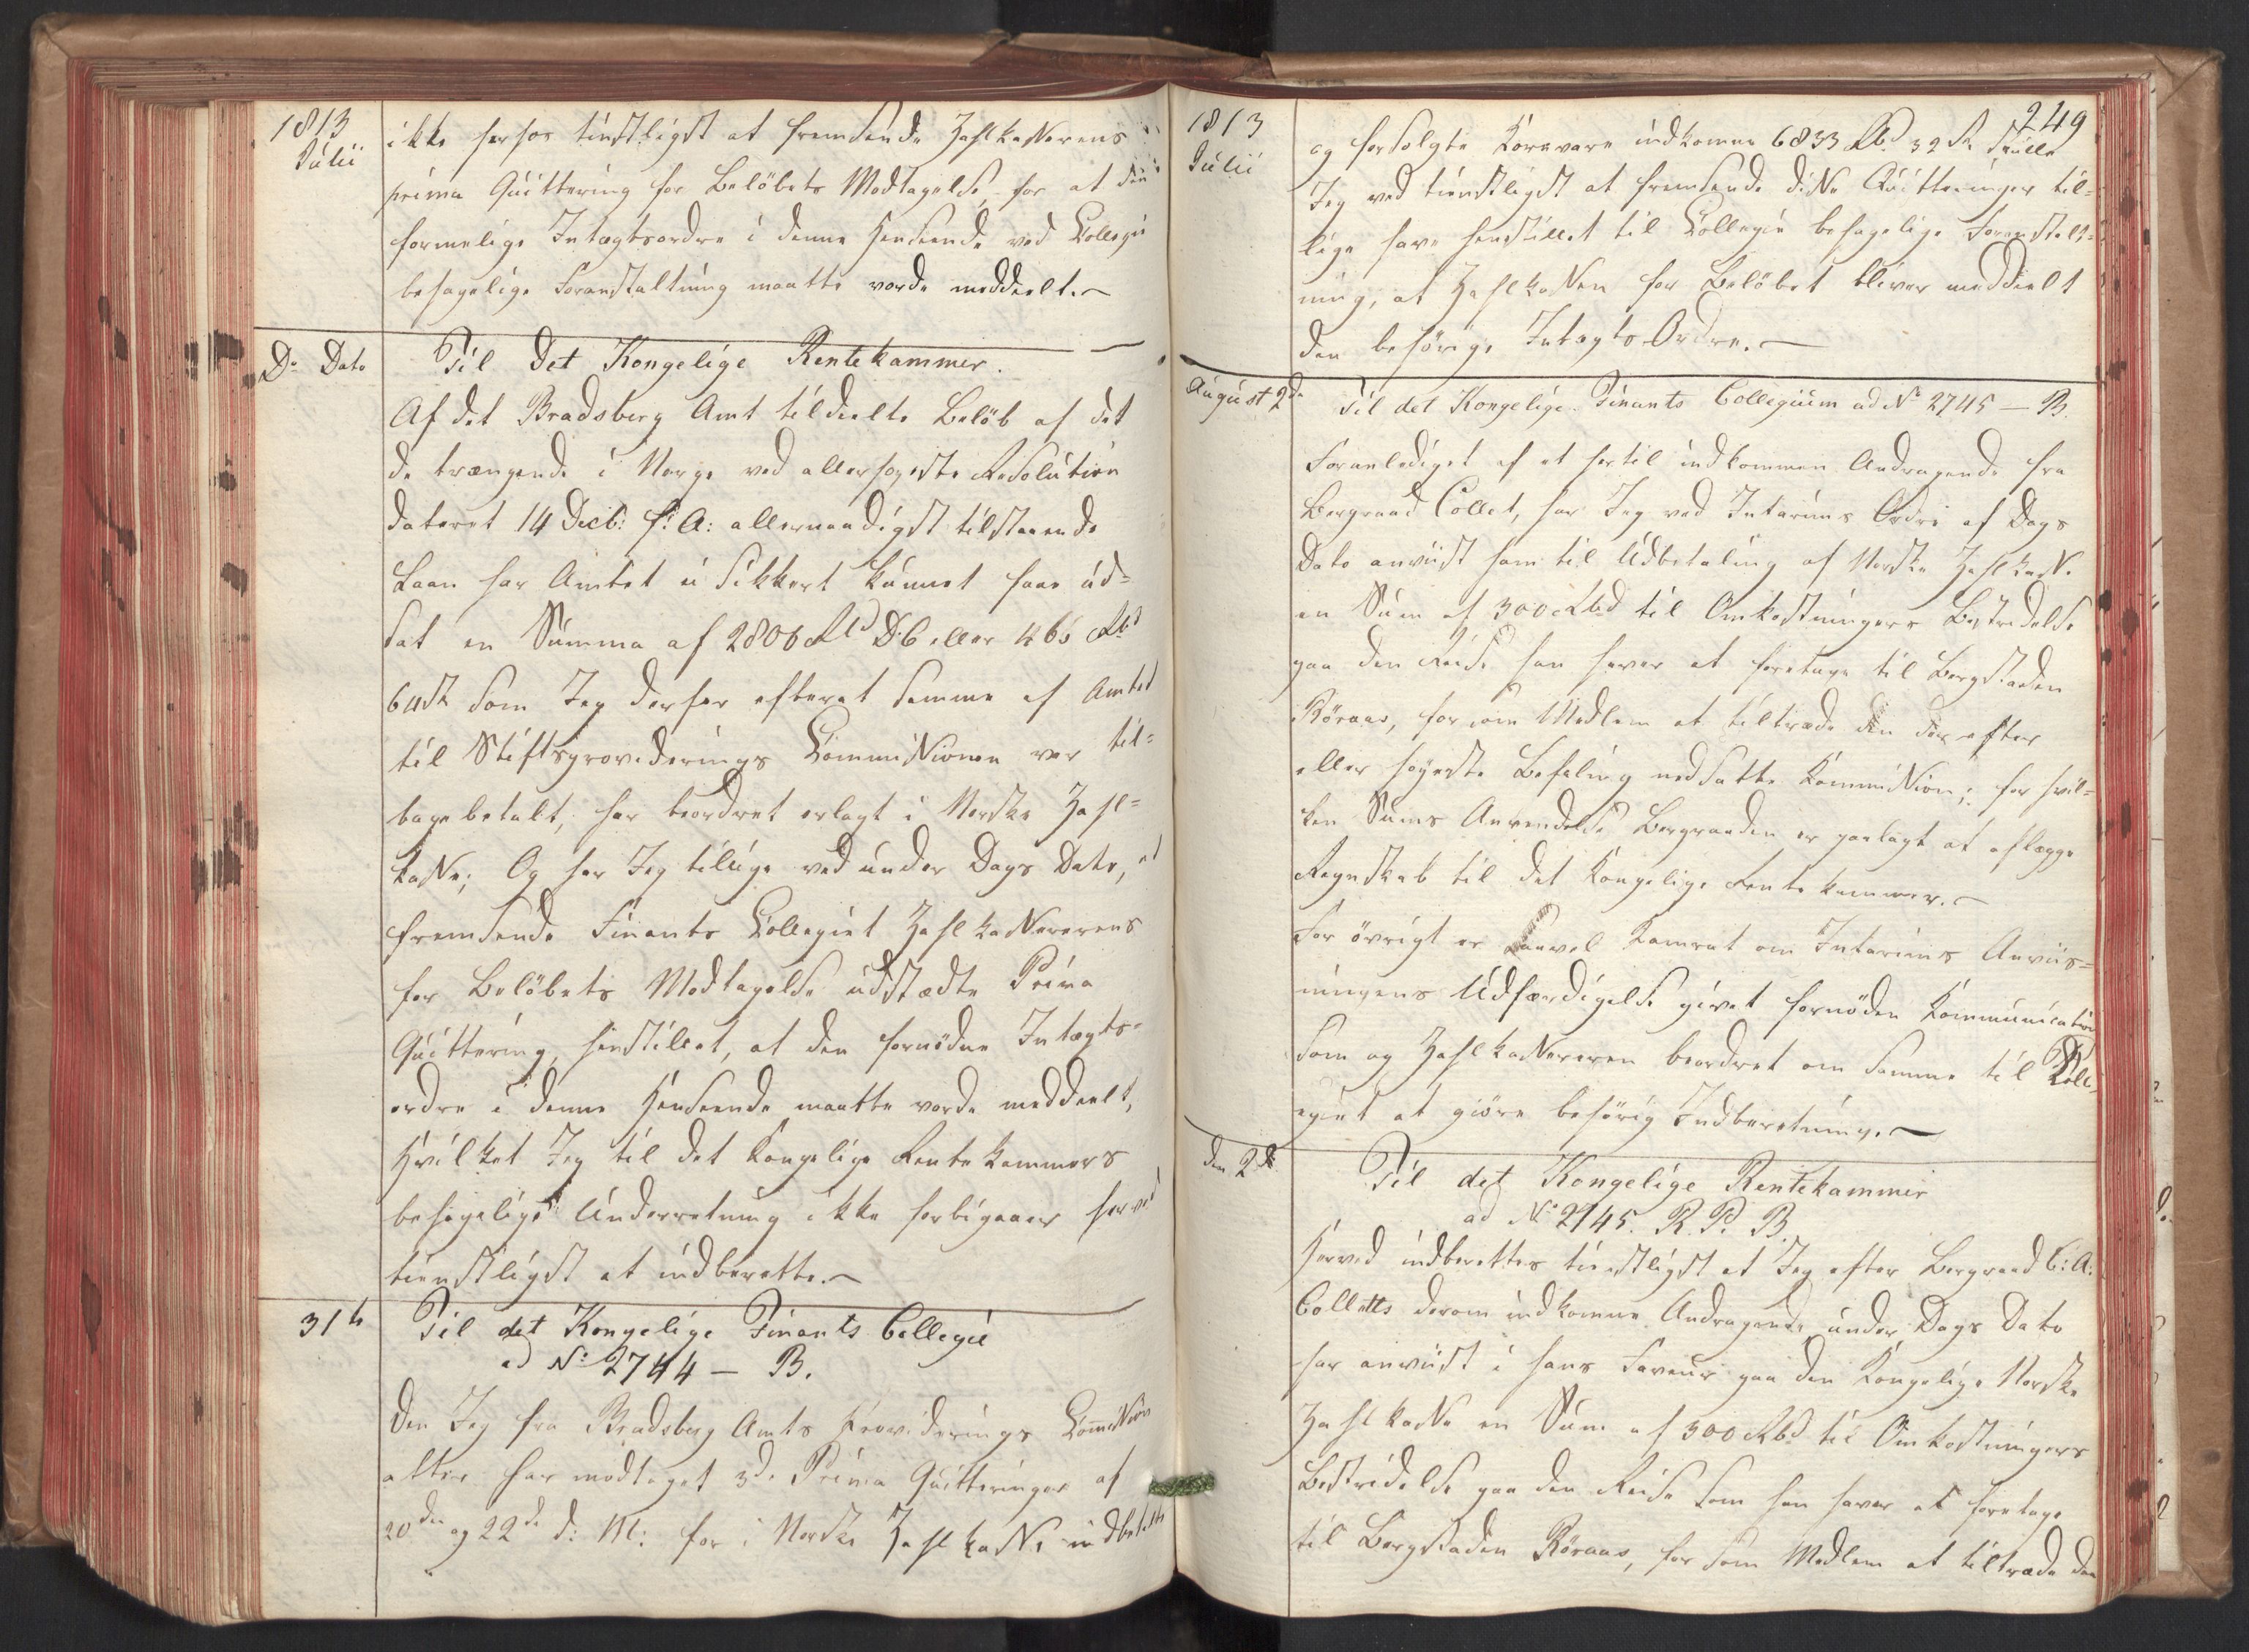 1813
Julii
ikke herhos tienstligst at fremsende Zahlkasserens
prima Quittering for Beløbets Modtagelse, for at den
formelige Indtægtsordre i denne Henseende ved Collegii
behagelige Foranstaltning maatte vorde meddeelt.
Do Dato
Til det Kongelige Rentekammer.
Af det Bradsberg Amt tildeelte Beløb af det
de trængende i Norge ved allerhøyeste Resolution
dateret 14 Decb: f: A: allernaadigst tilstaaende
Laan har Amtet ei sikkert kunnet faae ud-
sat en Summa af 2806 Rd DC eller 466 Rbd
64 s som Jeg derfor efterat samme af Amtet
til Stiftsproviderings Commissionen var til-
bagebetalt, har beordret erlagt i Norske Zahl-
kasse; Og har Jeg tillige ved under Dags Dato, at
fremsende Finants Collegiet Zahlkassererens
for Beløbets Modtagelse udstædte Prima
Quittering, henstillet, at den fornødne Indtægts-
ordre i denne Henseende maatte vorde meddeelt,
Hvilket Jeg til det Kongelige Rentekammers
behagelige Underretning ikke forbigaaer herved
tienstligst at indberette.
31te
Til det Kongelige Finants Collegie
ad No 2744 - B.
Den Jeg fra Bradsberg Amts Providerings Commission
atter har modtaget 3de Prima Quitteringer af
20de og 22de d: M: for i Norske Zahlkasse indbetalte
249
1813
Julii
og forsolgte Kornvare indkomne 6833 Rbd 32 s skulle
Jeg ved tienstligst at fremsende disse Quitteringer til-
lige have henstillet til Collegii behagelige Foranstalt-
ning, at Zahlkassen for Beløbet bliver meddeelt
den behørige Indtægts Ordre.
August 2de
Til det Kongelige Finants Collegium ad No 2745 - B.
Foranlediget af et hertil indkommen Andragende fra
Bergraad Collet, har Jeg ved Interims Ordre af Dags
Dato anviist ham til Udbetaling af Norske Zahlkasse
en Sum af 300 Rbd til Omkostningers Bestridelse
paa den Reise han haver at foretage til Bergstaden
Röraas, for som Medlem at tiltræde den der efter
allerhøyeste Befaling nedsatte Kommission; for hvil-
ken Sums Anvendelse Bergraaden er paalagt at aflægge
Regnskab til det Kongelige Rentekammer.
For øvrigt er saavel Kamret om Interims Anviis-
ningens Udfærdigelse givet fornøden Kommunication
som og Zahlkassereren beordret om samme til Coll-
egiet at giøre behørig Indberetning.
den 2de
Til det Kongelige Rentekammer
ad No 2745. R. P. B.
Herved indberettes tienstligst at Jeg efter Bergraad C: A:
Colletts derom indkomne Andragende under Dags Dato
har anviist i hans Faveur paa den Kongelige Norske
Zahlkasse en Sum af 300 Rbd til Omkostningers
Bestridelse paa den Reise som han haver at foretage
til Bergstaden Röraas, for som Medlem at tiltræde den